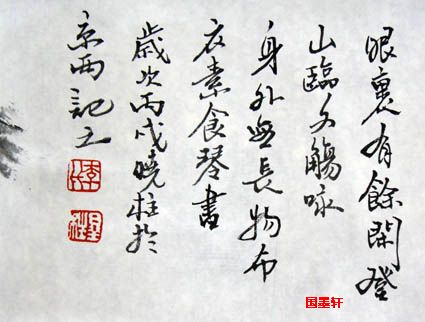 眼裏有餘閑登
山臨水觴咏
身外無長物布
衣素食琴書
歲次丙戌曉柱於
京西記之
国墨轩